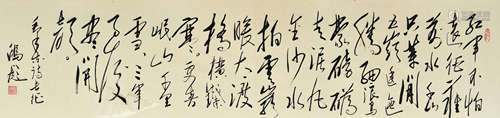 红军不怕
远征难
万水千
山只等闲
五岭逶迤
腾细浪
乌蒙磅礴
走泥丸
金沙水
拍云崖
暖大渡
桥横铁
索寒更喜
岷山千里
雪三军
过后
尽开
颜